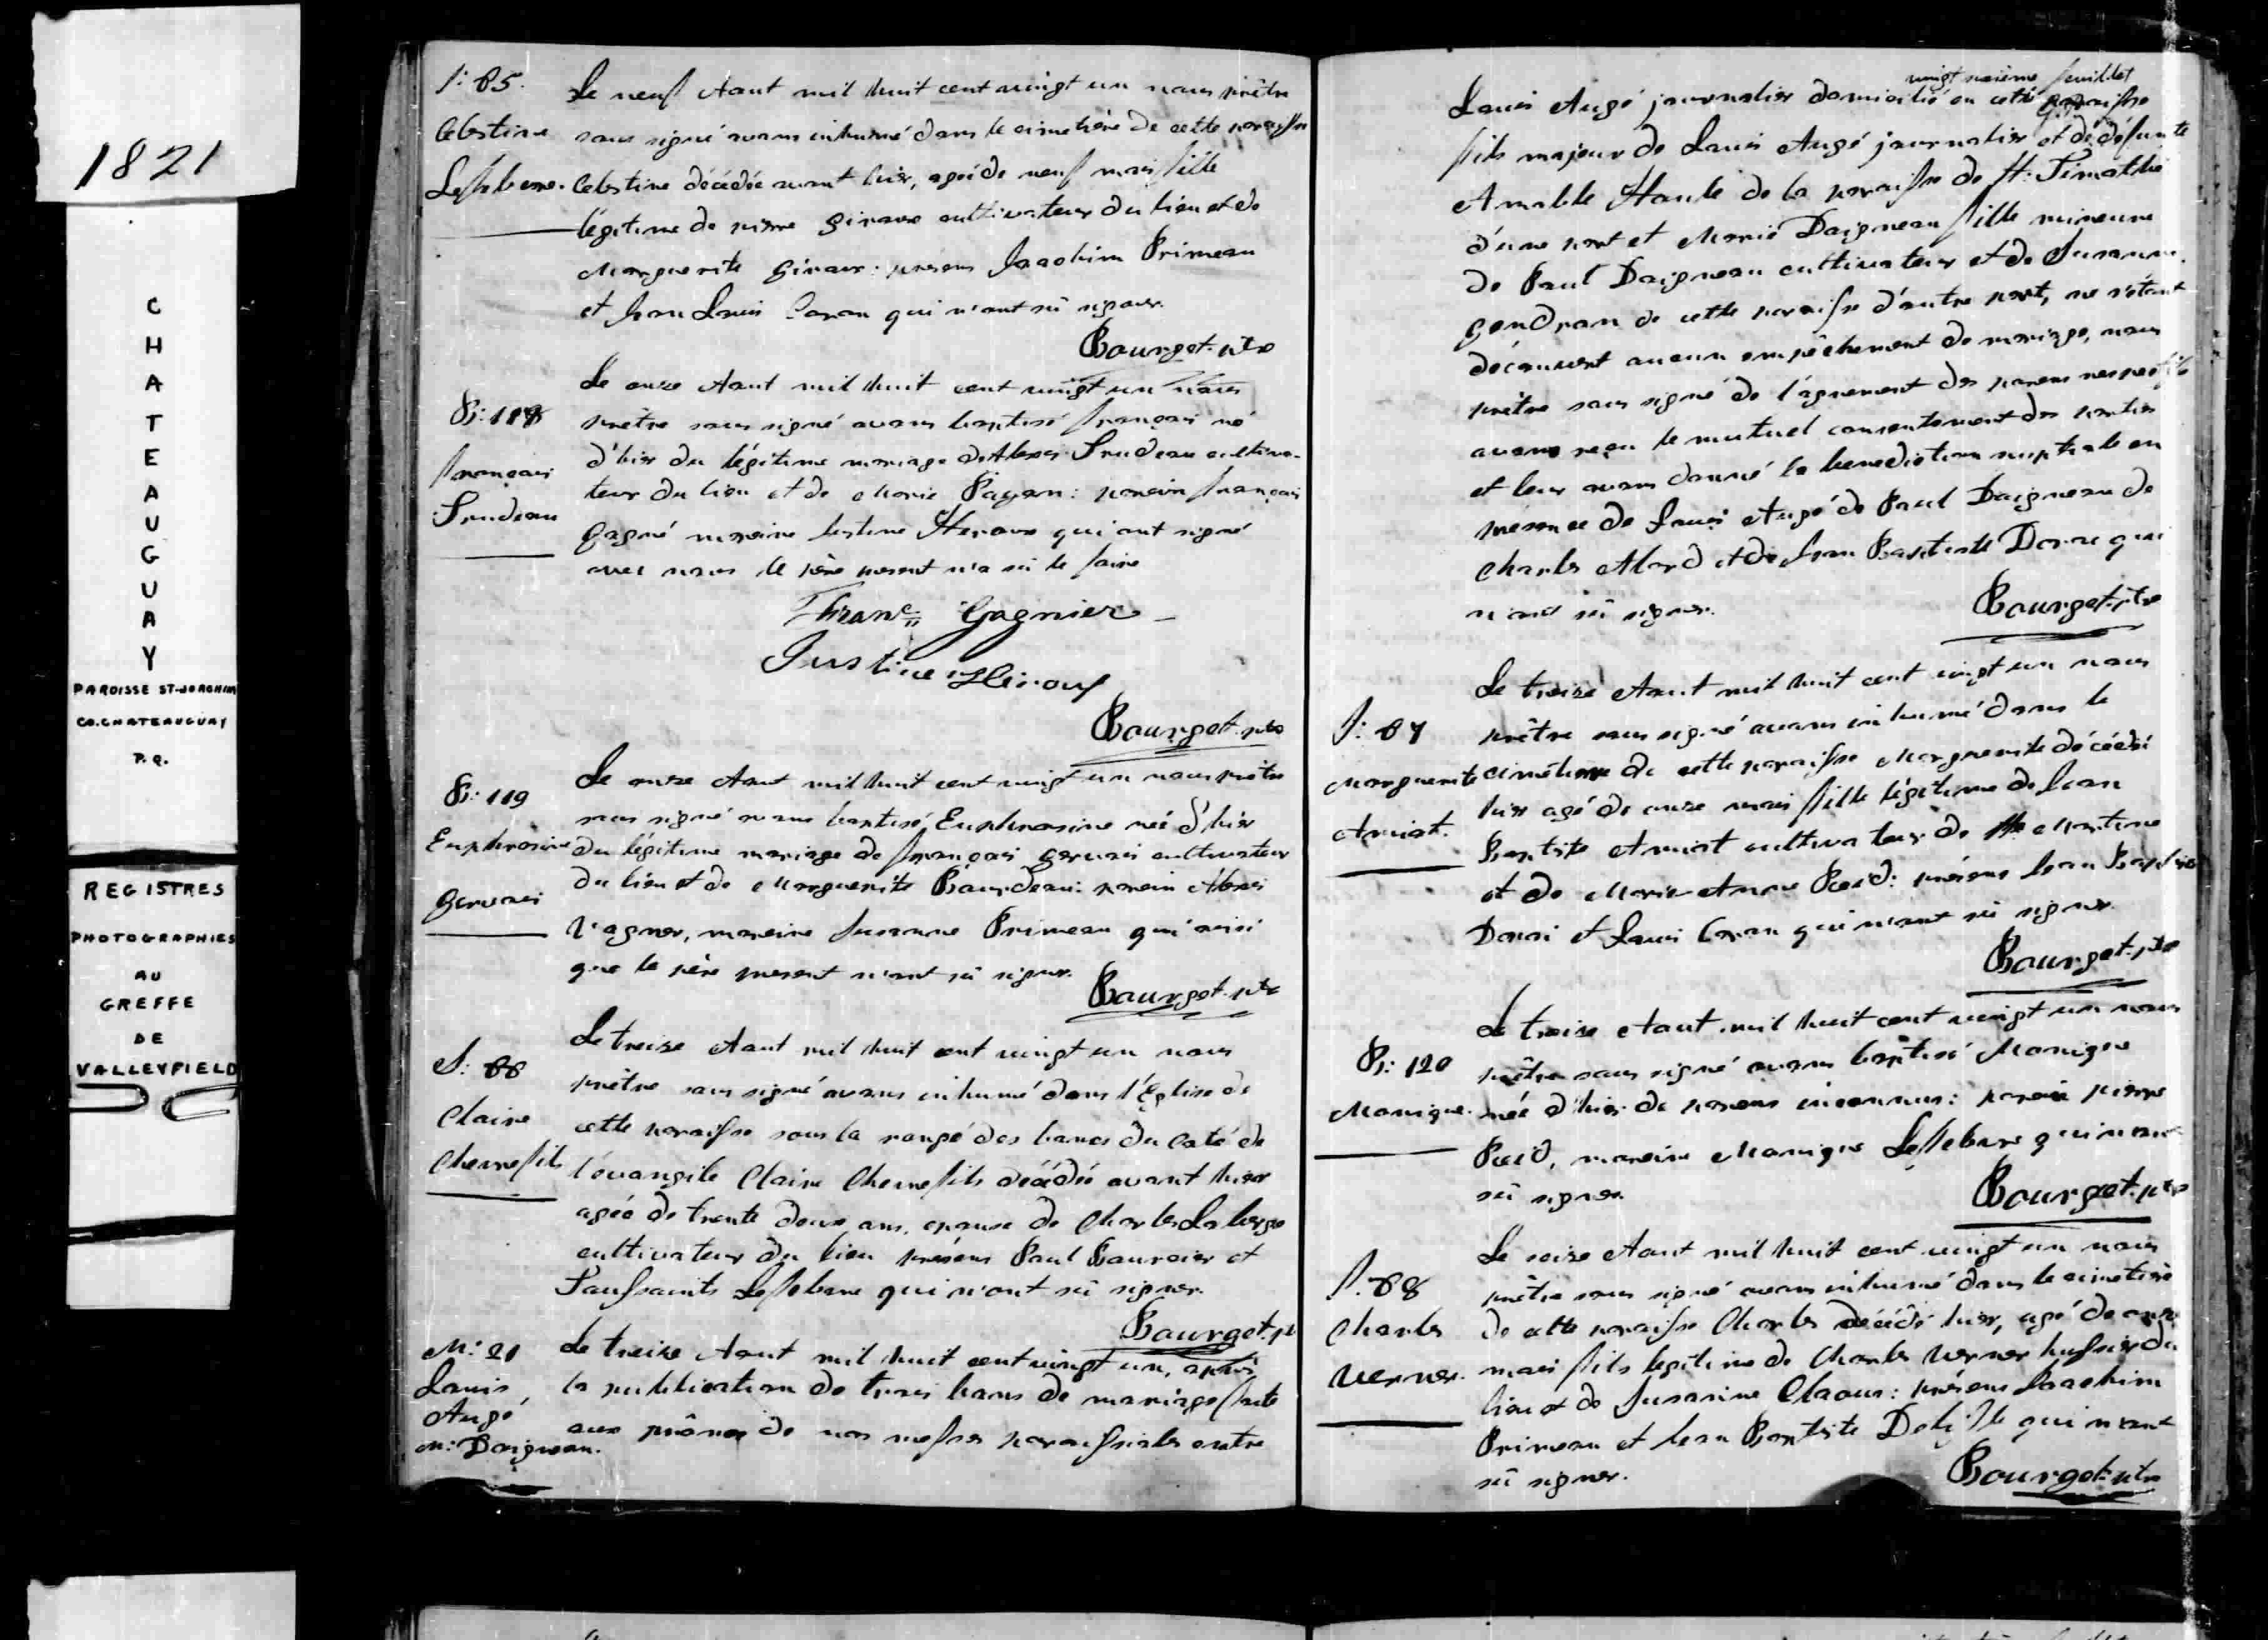 1821
CHATEAUGUAY
PAROISSE ST-JOACHIM
CO. CHATEAUGUAY
P.Q.
REGISTRES
PHOTOGRAPHIES
AU
GREFFE
DE
VALLEYFIELD
S: 65.
Celestine
Lefebvre.
Le neuf Aout mil huit cent vingt un nous prêtre
sous signé avons inhumé dans le cimetière de cette paroisse
Celestine décédée avant hier, agée de neuf mois fille
légitime de pierre Giroux cultivateur du lieu et de
Marguerite Giroux: présens Joachim Primeau
et Jean Louis Caron qui n'ont sû signer.
Bourget. ptre
B: 118
françois
Trudeau
Le onze Aout mil huit cent vingt un nous
prêtre sous signé avons baptisé françois né
d'hier du légitime mariage de Alexis Trudeau cultiva-
teur du lieu et de Marie Payan: parein françois
Gagné mareine Justine Heroux qui ont signé
avec nous le père présent n'a sû le faire
Franc Gagnier
Justine Heroux
Bourget. ptre
B: 119
Euphrosine
Gervais
Le onze Aout mil huit cent vingt un nous prêtre
sous signé avons baptisé Euphrosine née d'hier
du légitime mariage de françois Gervais cultivateur
du lieu et de Marguerite Bourdeau: parein Alexis
Vagner, mareine Susanne Primeau qui ainsi
que le père présent n'ont sû signer.
Bourget. ptre
S: 66
Claire
Chenefils
Le treize Aout mil huit cent vingt un nous
prêtre sous signé avons inhumé dans l'Eglise de
cette paroisse sous la rangé des bancs du coté de
l'évangile Claire Chenefils décédée avant hier
agée de trente deux ans, epouse de Charles Laberge
cultivateur du lieu présens Paul Bourcier et
Toussaints Lefebvre qui n'ont sû signer.
Bourget. pt
M: 21
Louis
Augé
M: Daigneau.
Le treize Aout mil huit cent vingt un, après
la publication de trois bans de mariage faite
aux prônes de nos messes paroissiales entre
vingt neuième feuillet
Louis Augé journalier domicilié en cette paroisse
fils majeur de Louis Augé journalier et de défunte
Amable Haule de la paroisse de St: Timothée
d'une part et Marie Daigneau fille mineure
de Paul Daigneau cultivateur et de Susanne
Gendron de cette paroisse d'autre part, ne s'étant
découvert aucun empêchement de mariage, nous
prêtre sous signé de l'agrement des parens respectifs
avons reçu le mutuel consentement des parties
et leur avons donné la benediction nuptiale en
présence de Louis Augé de Paul Daigneau de
Charles Alard et de Jean Baptiste Dorai qui
n'ont sû signer.
Bourget. ptre
S: 67
Marguerite
Amiot.
Le treize Aout mil huit cent vingt un nous
prêtre sous signé avons inhumé dans le
cimetière de cette paroisse Marguerite décédée
hier agé de onze mois fille légitime de Jean
Baptiste Amiot cultivateur de Ste Martine
et de Marie Anne Reid: présens Jean Baptiste
Dorai et Louis Caron qui n'ont sû signer.
Bourget. ptre
B: 120
Monique.
Le treize Aout mil huit cent vingt un nous
prêtre sous signé avons baptisé Monique
née d'hier de parens inconnus: parein pierre
Reid, mareine Monique Lefebvre qui n'ont
sû signer.
Bourget. ptre
S. 68
Charles
Verner.
Le seize Aout mil huit cent vingt un nous
prêtre sous signé avons inhumé dans le cimetière
de cette paroisse Charles décédé hier, agé de onze
mois fils legitime de Charles Verner huissier du
lieu et de Susanne Claour: présens Joachim
Primeau et Jean Baptiste Delisle qui n'ont
sû signer.
Bourget. ptre